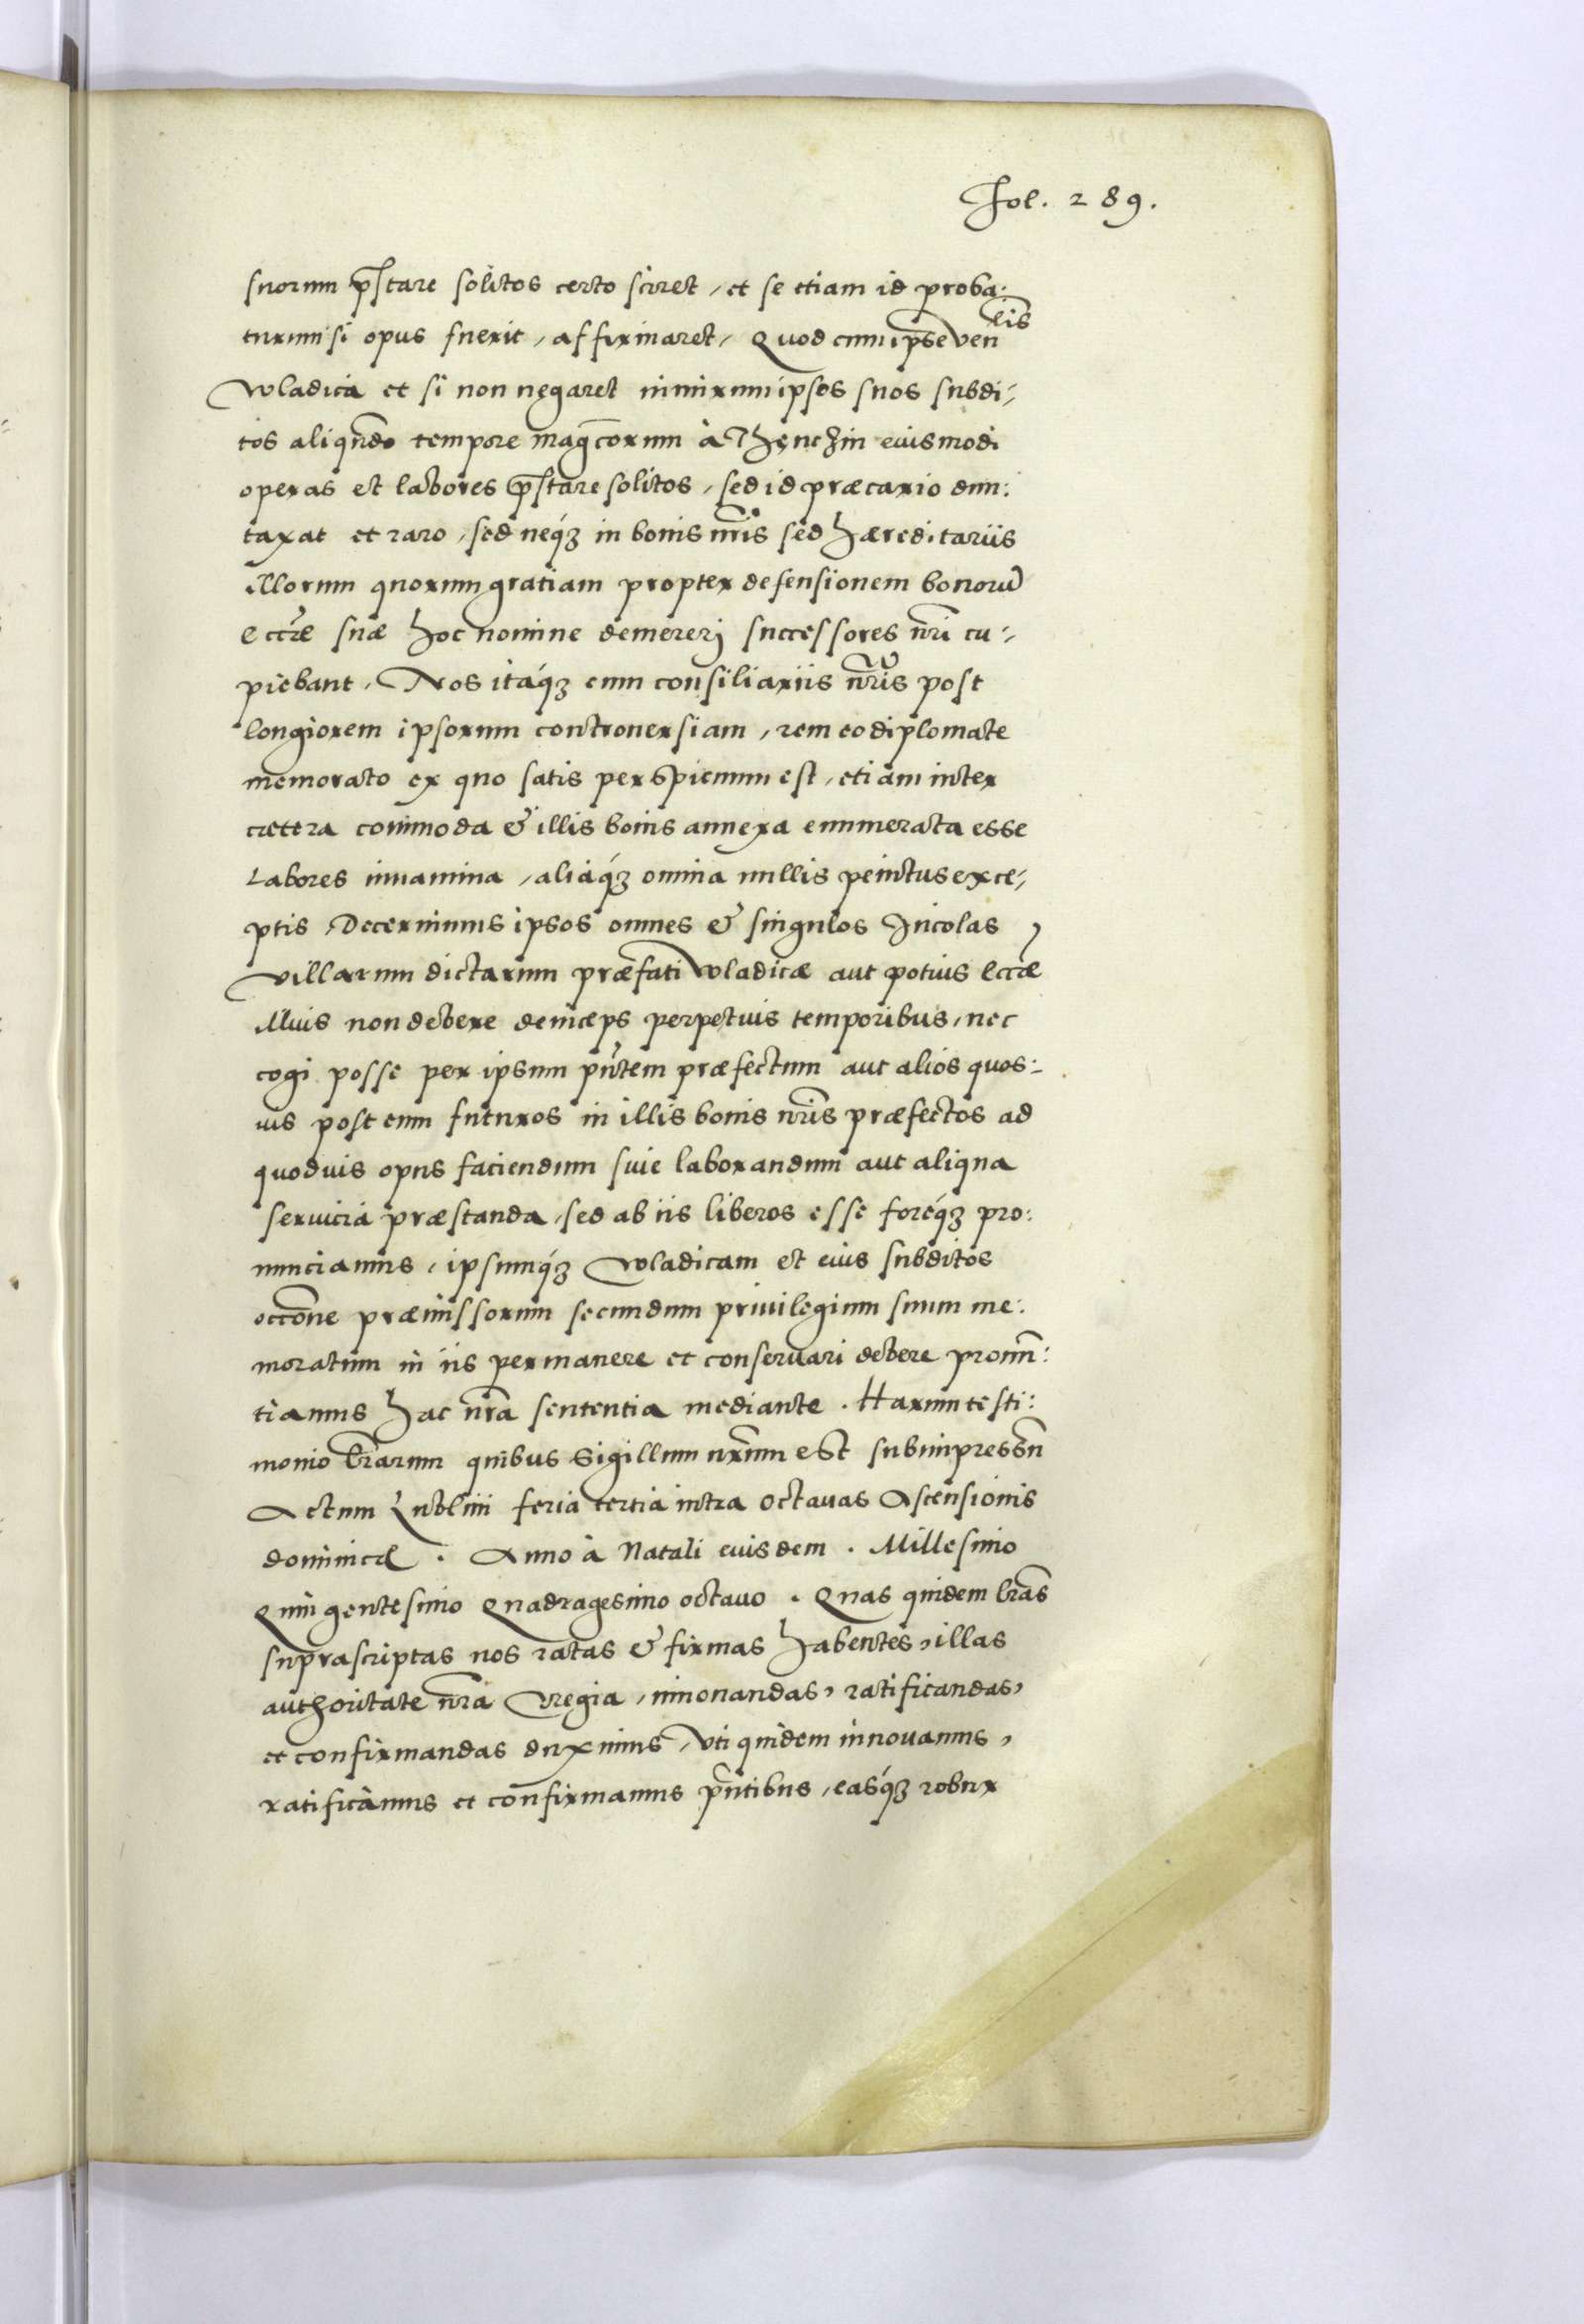 Fol. 289.
suorum p̄stare solitos certo sciret, et se etiam id proba:
turum si opus fuerit, affirmaret, Quod cum ip̄se venlis
Wladica et si non negaret nimirum ipsos suos subdi,
tos aliqn̄do tempore mag̃corum à Thęnczin eiusmodi
operas et labores p̄stare solitos, sed id præcario dun:
taxat et raro, sed neq́ꝫ in bonis nr̃is sed hæreditariis
illorum quorum gratiam propter defensionem bonorū
eccł̃e suæ hoc nomine demererj successores nr̃i cu,
piebant, Nos itaq́ꝫ cum consiliariis nr̃is post
longiorem ipsorum controuersiam, rem eo diplomate
memorato ex quo satis perspicuum est, etiam inter
cætera commoda & illis bonis annexa enumerata esse
Labores iuuamina, aliaq́ꝫ omnia nullis penitus exce,
ptis, Decernimus ipsos omnes & singulos Incolas
villarum dictarum præfati Wladicæ aut potius Eccłæ
Illius non debere deinceps perpetuis temporibus, nec
cogi posse per ipsum pn̄tem præfectum aut alios quos:
uis post eum futuros in illis bonis nr̃is præfectos ad
quoduis opus faciendum siue laborandum aut aliqua
seruicia præstanda, sed ab iis liberos esse foreq́ꝫ pro:
nunciamus, ipsumq́ꝫ Wladicam et eius subditos
occōne præmissorum secundum priuilegium suum me:
moratum in iis permanere et conseruari debere pronun̄:
tiamus hac nr̃a sententia mediante. Harum testi:
monio lr̃arum quibus Sigillum nr̃um est subimpressū
Actum Lublini feria tertia intra octauas Ascensionis
dominicæ. Anno à Natali eiusdem. Millesimo
Quingentesimo Quadragesimo octauo. Quas quidem lr̃as
suprascriptas nos ratas & firmas habentes, illas
authoritate nr̃a Regia, innouandas, ratificandas,
et confirmandas duximus, Vti quidem innouamus,
ratificamus et confirmamus pn̄tibus, easq́ꝫ robur